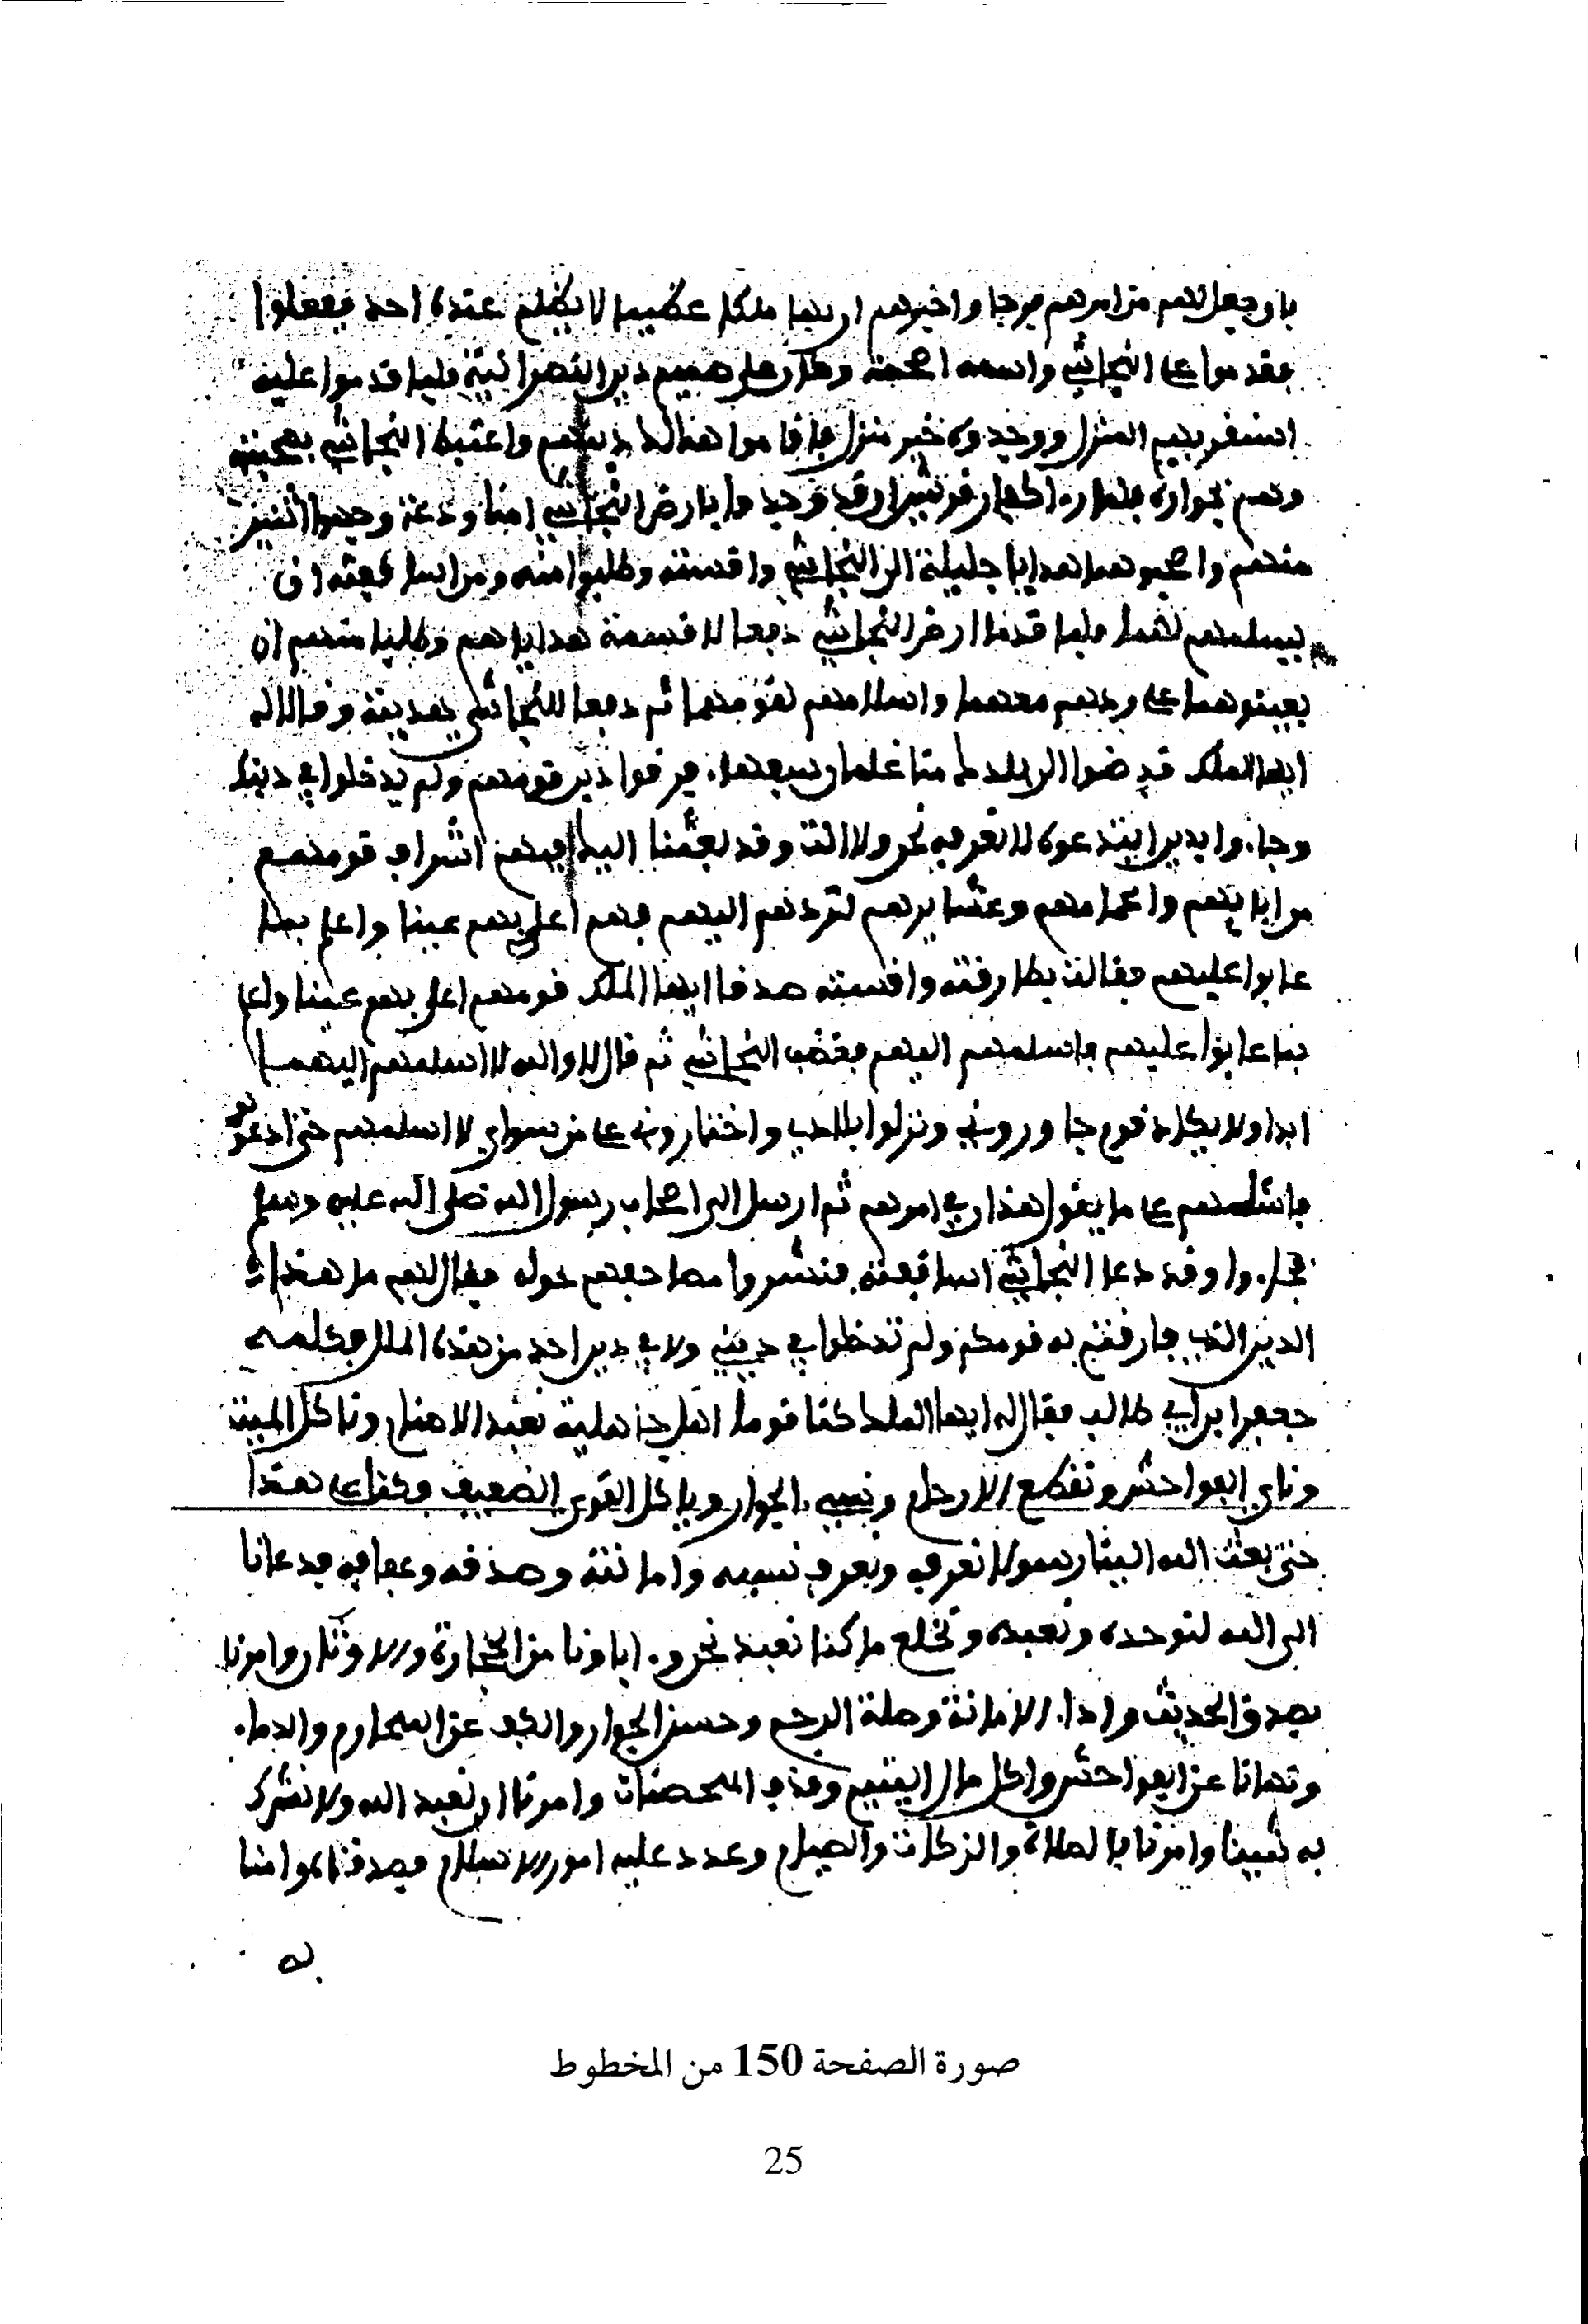 بها وجعل لهم من امرهم فرجا واخبرهم ان بها ملكا عظيما لا يظلم عنده احد ففعلوا
فقدموا على النجاشي واسمه اصحمة وكان على صميم دين النصرانية فلما قدموا عليه
استقر بهم المنزل ووجدوه خير منزل فاقاموا هنالك واعتبط النجاشي بصحبته
وهم بجواره فلما را كفار قريش ان قد وجدوا بارض النجاشي امنا ودعة وجهوا اثنين
منهم واصحبوهما هدايا جليلة الى النجاشي واقسته وطلبوا منه ومن اساقفته ان
يسلمهم لهما فلما قدما ارض النجاشي دفعا للاقسة هداياهم وطلبا منهم ان
يعينوهما على ردهم معهما واسلامهم لقومهما ثم دفعا للنجاشي هديته وقالا له
ايها الملك قد ضوا الى بلدك منا غلمان سبعهاء فرقوا دين قومهم ولم يدخلوا في دينك
وجاءوا بدين ابتدعوه لا نعرفه نحن ولا انت وقد بعثنا اليك فيهم اشراف قومهم
من ابايهم واعمامهم وعشايرهم لتردهم اليهم فهم اعلى بهم عينا واعلم بما
عابوا عليهم فقالت بطارفته واقسته صدقا ايها الملك قومهم اعلى بهم عينا واعلم
بما عابوا عليهم فاسلمهم اليهم فغضب النجاشي ثم قال لا والله لا اسلمهم اليهما
ابدا ولا يكاد قوم جاوروني ونزلوا بلادي واختاروني على من سواي لا اسلمهم حتى ادعوهم
فاسئلهم عما يقول هذان في امرهم ثم ارسل الى اصحاب رسول الله صلى الله عليه وسلم
فجاءوا وقد دعا النجاشي اساقفته فنشروا مصاحفهم حوله فقال لهم ما هذا
الدين الذي فارقتم به قومكم ولم تدخلوا في ديني ولا في دين احد من هذه الملل فكلمه
جعفر ابن ابي طالب فقال له ايها الملك كنا قوما اهل جاهلية نعبد الاصنام وناكل الميتة
وناتي الفواحش ونقطع الارحام ونسيء الجوار وياكل القوي الضعيف وكنا على هذا
حتى بعث الله الينا رسولا نعرفه ونعرف نسبه وامانته وصدقه وعفافه فدعانا
الى الله لنوحده ونعبده ونخلع ما كنا نعبد نحن وءاباونا من الحجارة والاوثان وامرنا
بصدق الحديث واداء الامانة وصلة الرحم وحسن الجوار والكف عن المحارم والدماء
ونهانا عن الفواحش واكل مال اليتيم وقذف المحصنات وامرنا ان نعبد الله ولا نشرك
به شيئا وامرنا بالصلاة والزكاة والصيام وعدد عليه امور الاسلام فصدقناه وامنا
به
صورة الصفحة 150 من المخطوط
25